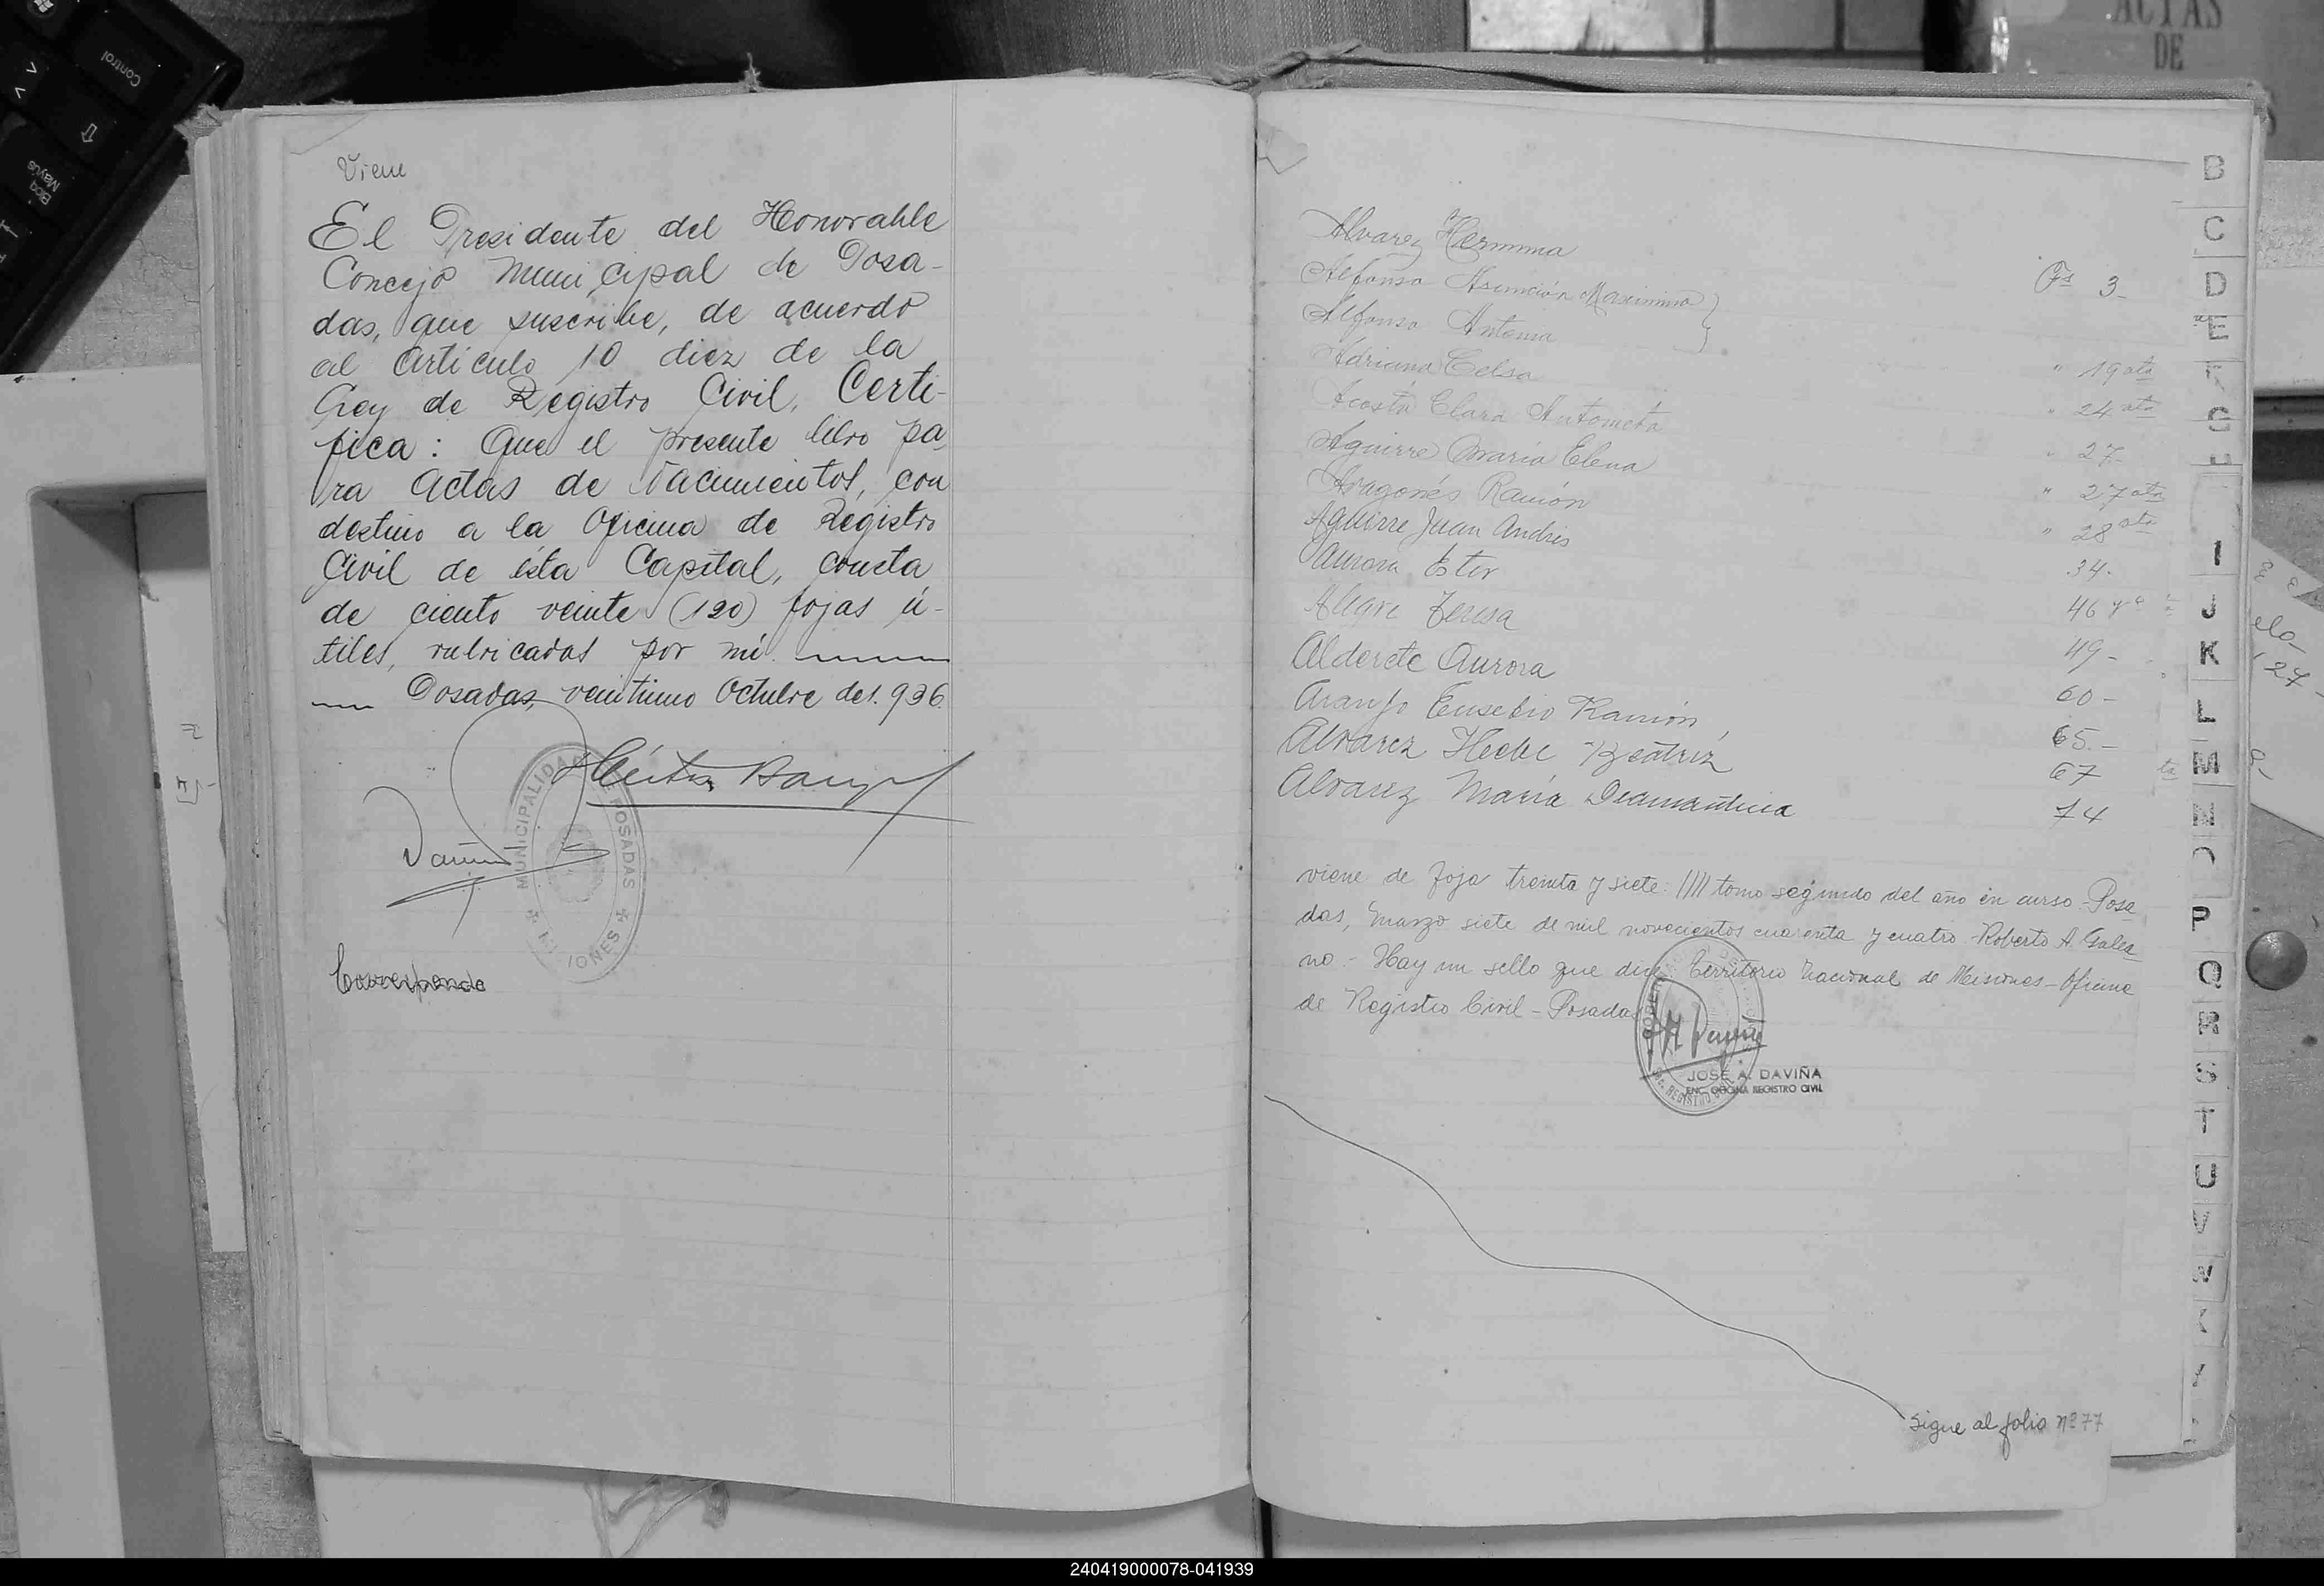 Viene
El Presidente del Honorable
Concejo Municipal de Posa-
das, que suscribe, de acuerdo
al artículo 10 diez de la
Ley de Registro Civil, Certi-
fica: Que el presente libro pa
ra actas de Nacimientos, con
destino a la Oficina de Registro
Civil de ésta Capital, consta
de ciento veinte (120) fojas ú-
tiles, rubricadas por mí.
Posadas, veintiuno Octubre de 1.936.
MUNICIPALIDAD DE POSADAS
MISIONES
Corresponde
Alvarez Herminia
Alfonso Asunción Maximino
Fs 3-
Alfonso Antonia
Adriana Celsa " 19 vta
Acosta Clara Antonieta " 24 vta
Aguirre María Elena " 27-
Aragonés Ramón " 27 vta
Aguirre Juan Andrés " 28 vta
Aurora Ester 34.
Alegre Teresa 46
Alderete Aurora 49-
Araujo Eusebio Ramón 60-
Alvarez Hebe Beatriz 65.-
Alvarez María Diamantina 67
74
viene de foja treinta y siete: //// tomo segundo del año en curso - Posa
das, marzo siete de mil novecientos cuarenta y cuatro - Roberto A. Galea
no.- Hay un sello que dice Territorio Nacional de Misiones - Oficina
de Registro Civil - Posadas
JOSÉ A. DAVIÑA
ENC. OFICINA REGISTRO CIVIL
Sigue al folio nº 77
B
C
D
E
F
G
I
J
K
L
M
N
O
P
Q
R
S
T
U
V
W
ACTAS
DE
Control
Bloq
Mayús
240419000078-041939